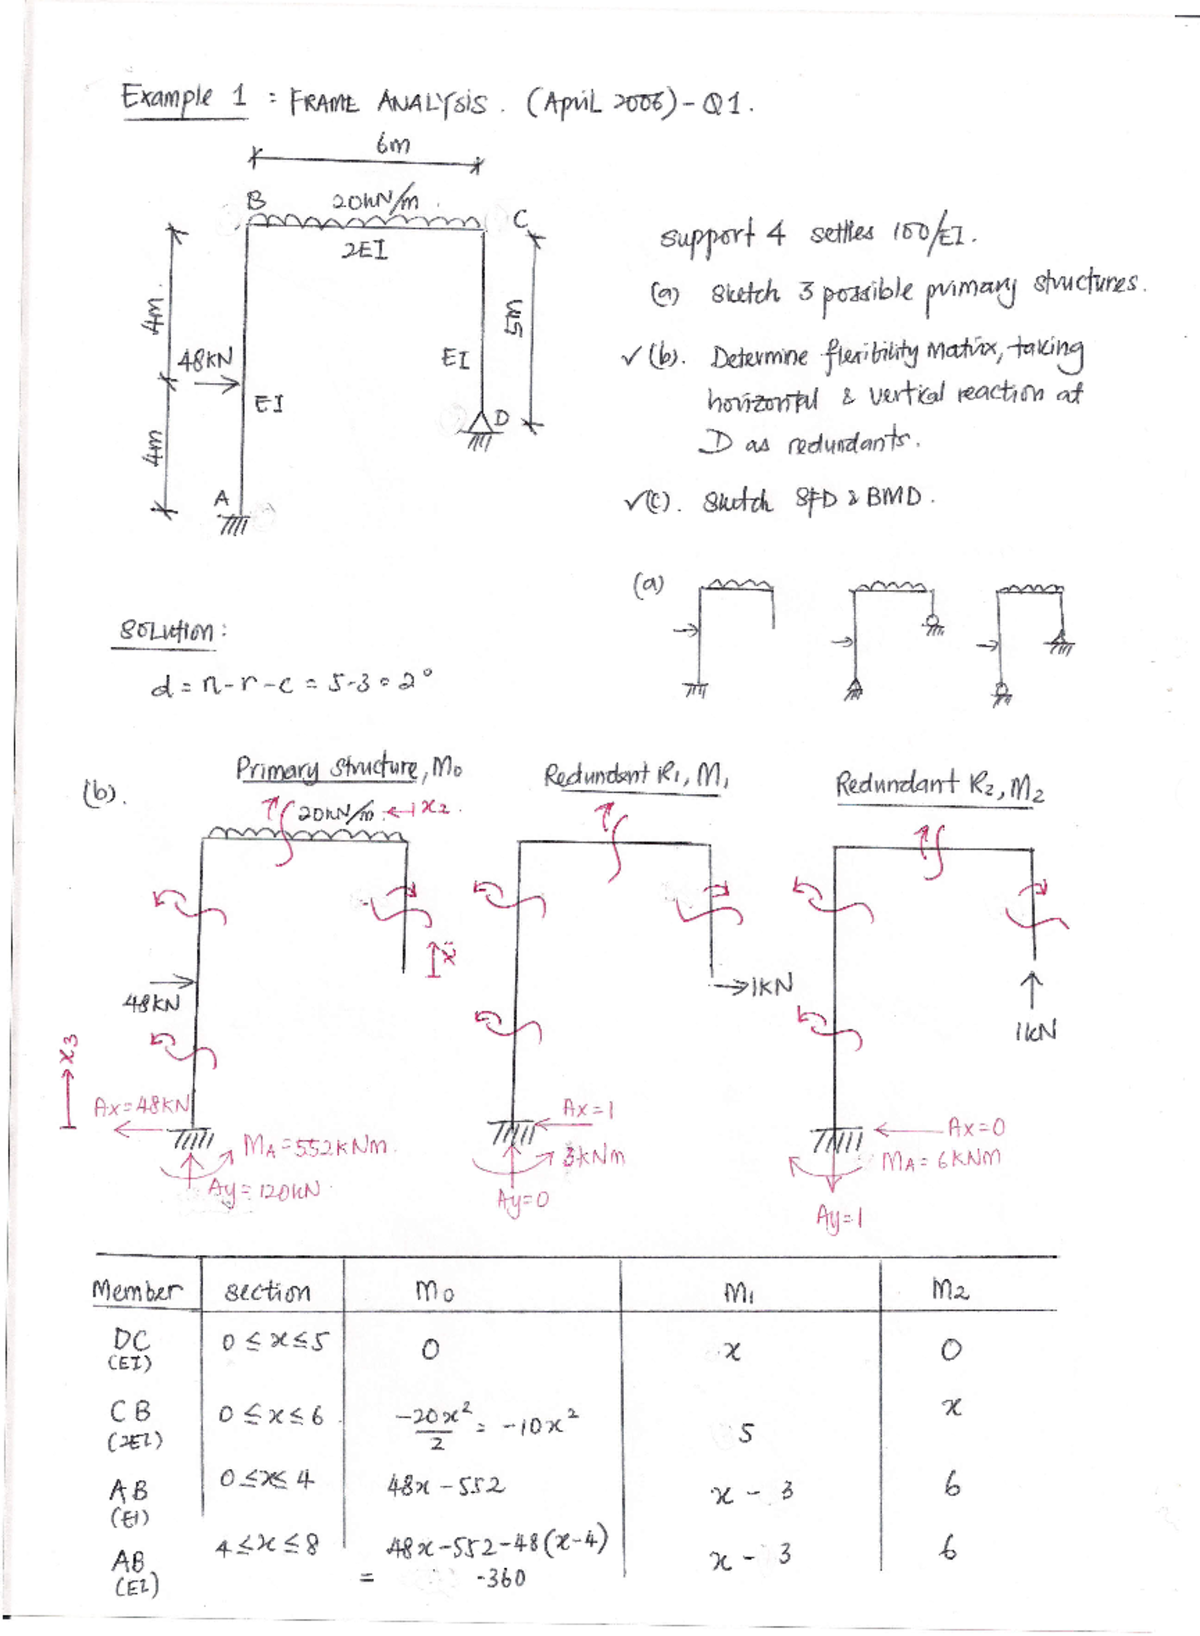 Example 1 : FRAME ANALYSIS. (April 2006) - Q1.
6m
B
20kN/m
C
2EI
4m
5m
48kN
EI
EI
D
4m
A
support 4 settles 100/EI.
(a) Sketch 3 possible primary structures.
✓ (b). Determine flexibility Matrix, taking
horizontal & vertical reaction at
D as redundants.
✓ (c). Sketch SFD & BMD.
(a)
SOLUTION:
d = n-r-c = 5-3 = 2°
(b).
Primary Structure, Mo
Redundant R1, M1
Redundant R2, M2
20kN/m
x2
x
48KN
1KN
1kN
x3
Ax=48KN
MA=552KNm
Ay=120KN
Ax=1
3KNm
Ay=0
Ax=0
MA=6KNM
Ay=1
Member section Mo M1 M2
DC (EI) 0 ≤ x ≤ 5 0 x 0
CB (2EI) 0 ≤ x ≤ 6 -20x²/2 = -10x² 5 x
AB (EI) 0 ≤ x ≤ 4 48x - 552 x - 3 6
AB (EI) 4 ≤ x ≤ 8 48x-552-48(x-4) x - 3 6
= -360